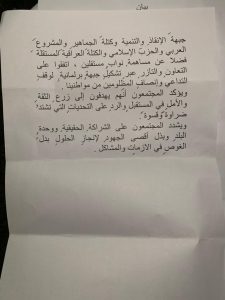 بيان
جبهة الإنقاذ والتنمية وكتلة الجماهير والمشروع
العربي والحزب الإسلامي والكتلة العراقية المستقلة
فضلا عن مساهمة نواب مستقلين ، اتفقوا على
التعاون والتآزر عبر تشكيل جبهة برلمانية لوقف
التداعي وإنصاف المظلومين من مواطنينا .
ويؤكد المجتمعون أنهم يهدفون إلى زرع الثقة
والأمل في المستقبل والرد على التحديات التي تشتد
ضراوة وقسوة .
ويشدد المجتمعون على الشراكة الحقيقية ووحدة
البلد وبذل أقصى الجهود لإنجاز الحلول بدل
الغوص في الأزمات والمشاكل .